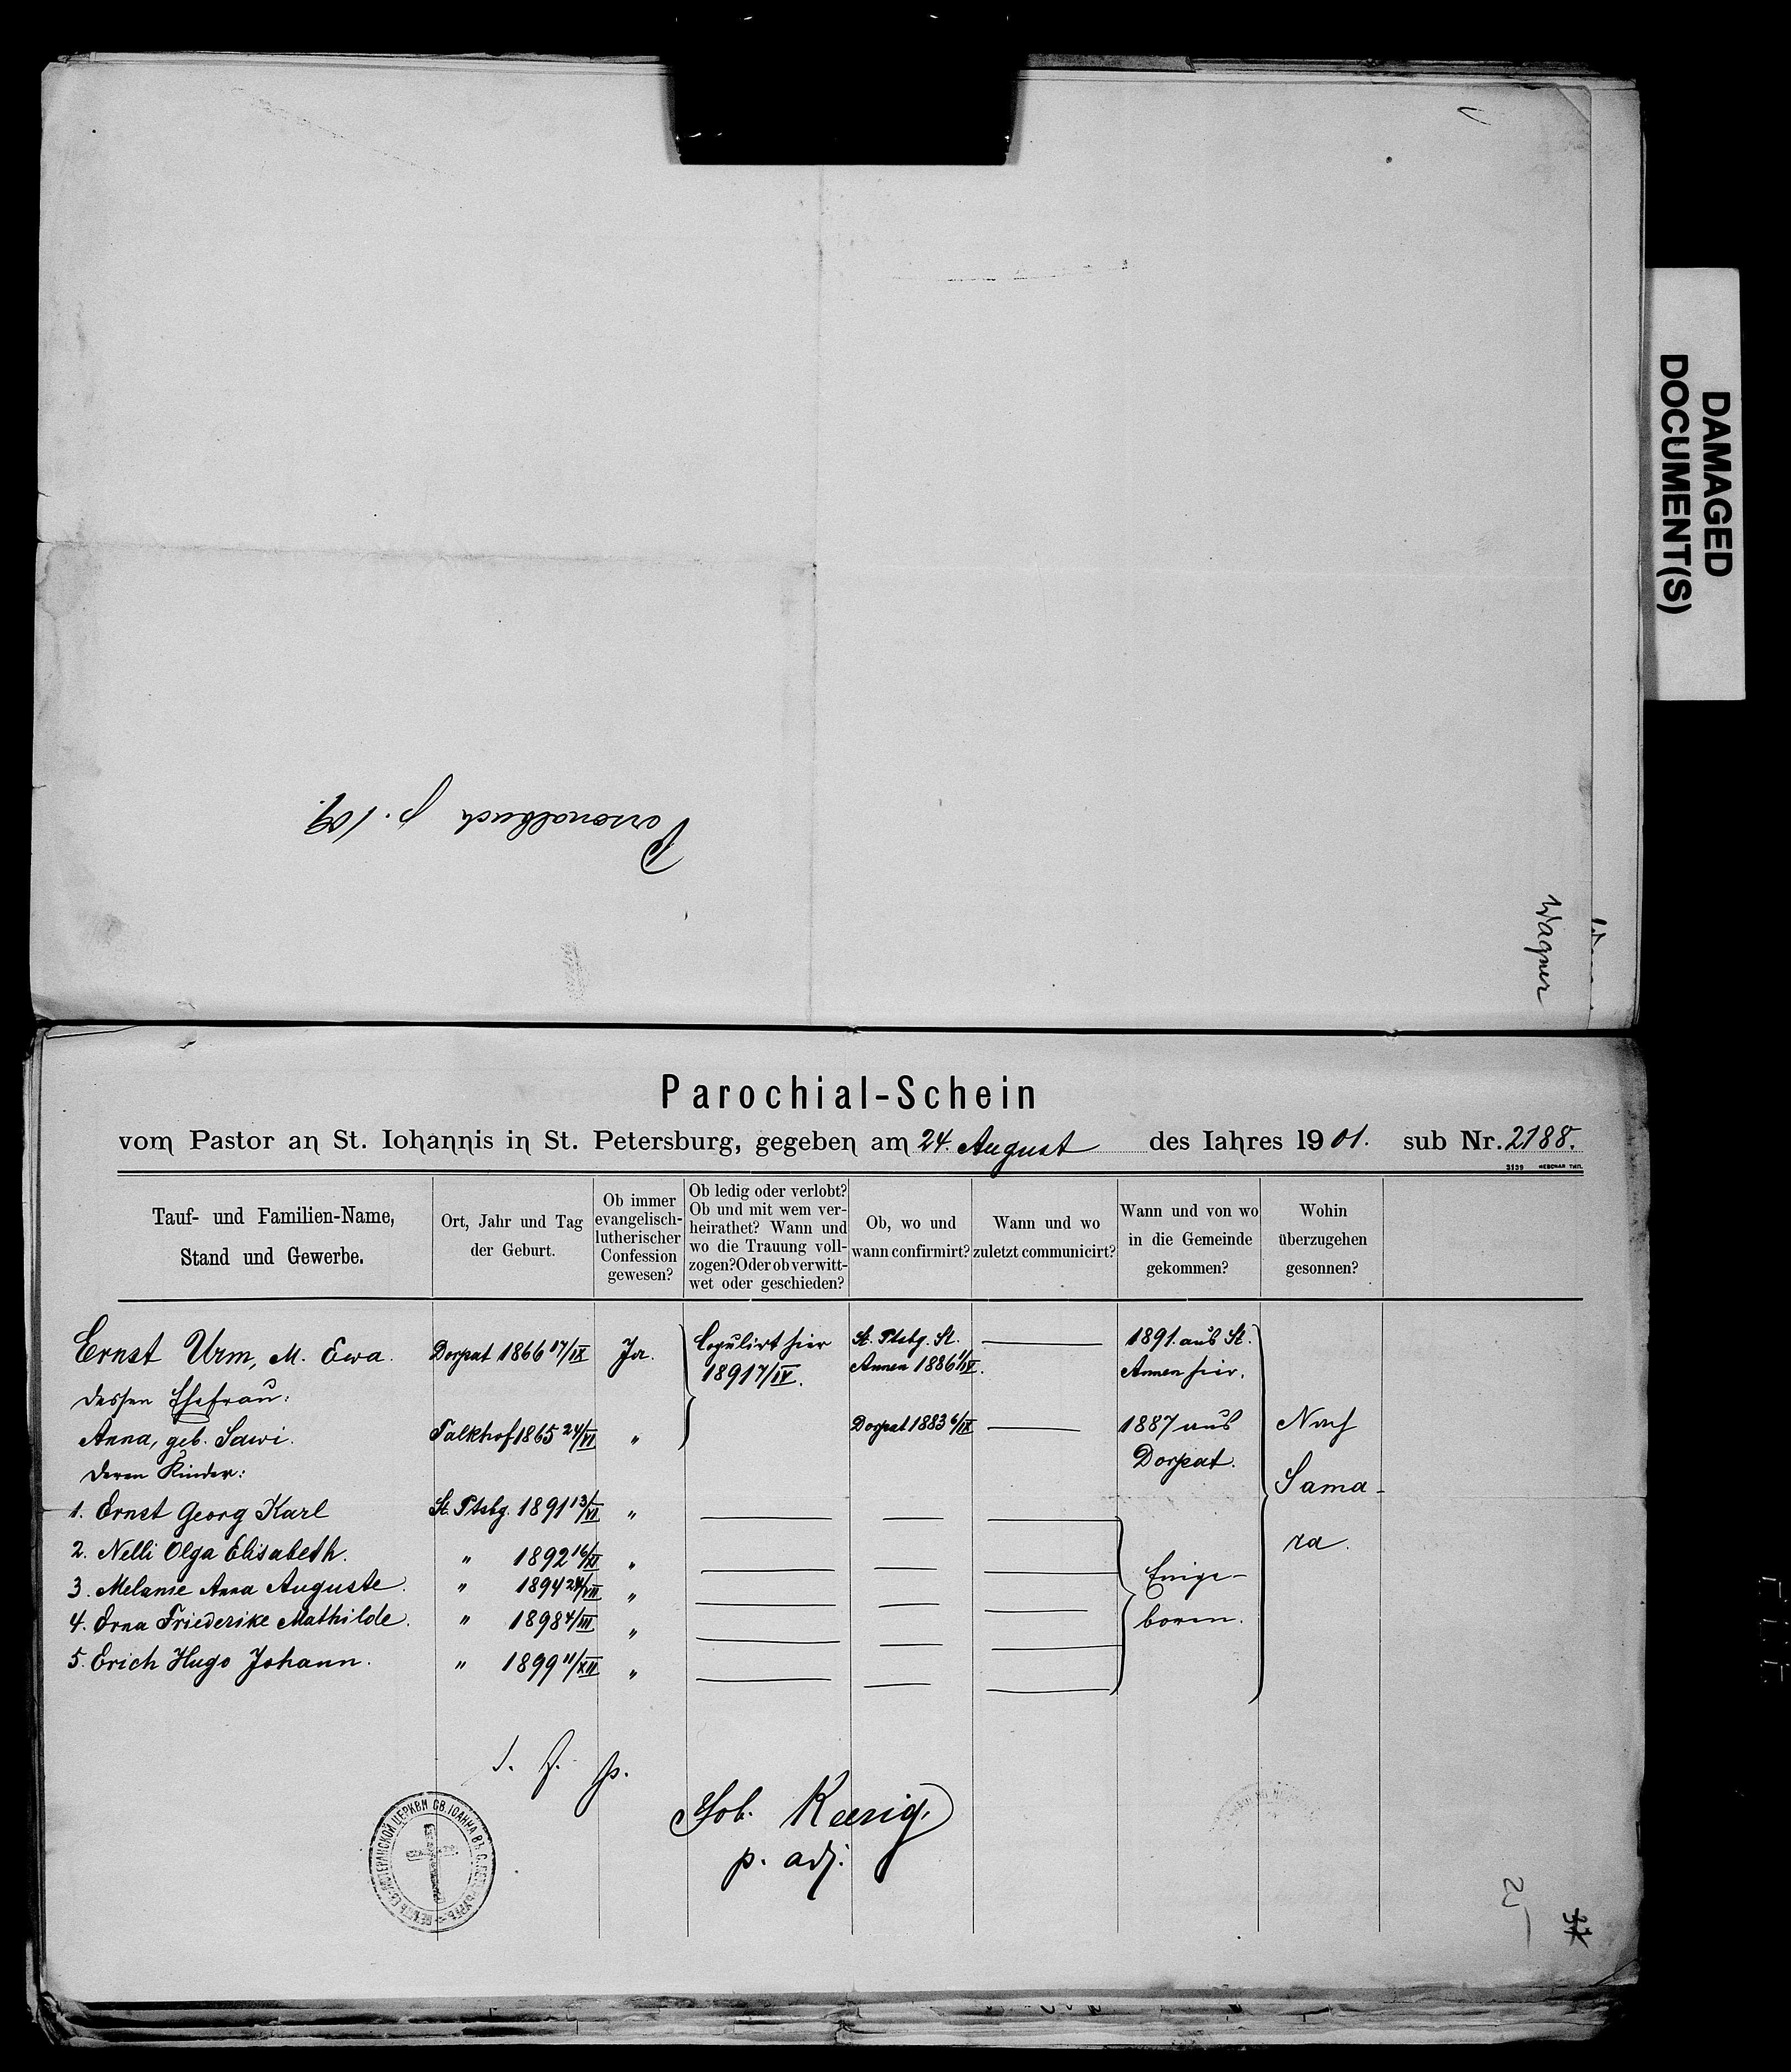 DAMAGED
DOCUMENT(S)
Personalbuch p. 109.
Wagner
Parochial-Schein
vom Pastor an St. Iohannis in St. Petersburg, gegeben am 24. August des Iahres 1901. sub Nr. 2188.
3139 НЕВСКАЯ ТИП.
Tauf- und Familien-Name,
Stand und Gewerbe.
Ort, Jahr und Tag
der Geburt.
Ob immer
evangelisch-
lutherischer
Confession
gewesen?
Ob ledig oder verlobt?
Ob und mit wem ver-
heirathet? Wann und
wo die Trauung voll-
zogen? Oder ob verwitt-
wet oder geschieden?
Ob, wo und
wann confirmirt?
Wann und wo
zuletzt communicirt?
Wann und von wo
in die Gemeinde
gekommen?
Wohin
überzugehen
gesonnen?
Ernst Urm, M. Ewa. Dorpat 1866 17/IX Ja. Copulirt hier
1891 7/IV.
St. Ptsbg. St.
Annen 1886 1/IV.
1891. aus St.
Annen hier.
dessen Ehefrau:
Anna, geb. Sawi. Talkhof 1865 24/VI " Dorpat 1883 6/IX 1887 aus
Dorpat.
Nach
Sama-
ra.
deren Kinder:
1. Ernst Georg Karl St. Ptsbg. 1891 13/VI "
2. Nelli Olga Elisabeth. " 1892 16/XI "
3. Melanie Anna Auguste. " 1894 24/VII "
4. Erna Friederike Mathilde. " 1898 4/III "
5. Erich Hugo Johann. " 1899 11/XII "
Einge-
boren.
Joh. Kærig.
p. adj.
ЦЕРКВИ СВ. ІОАННА ВЪ С.
25